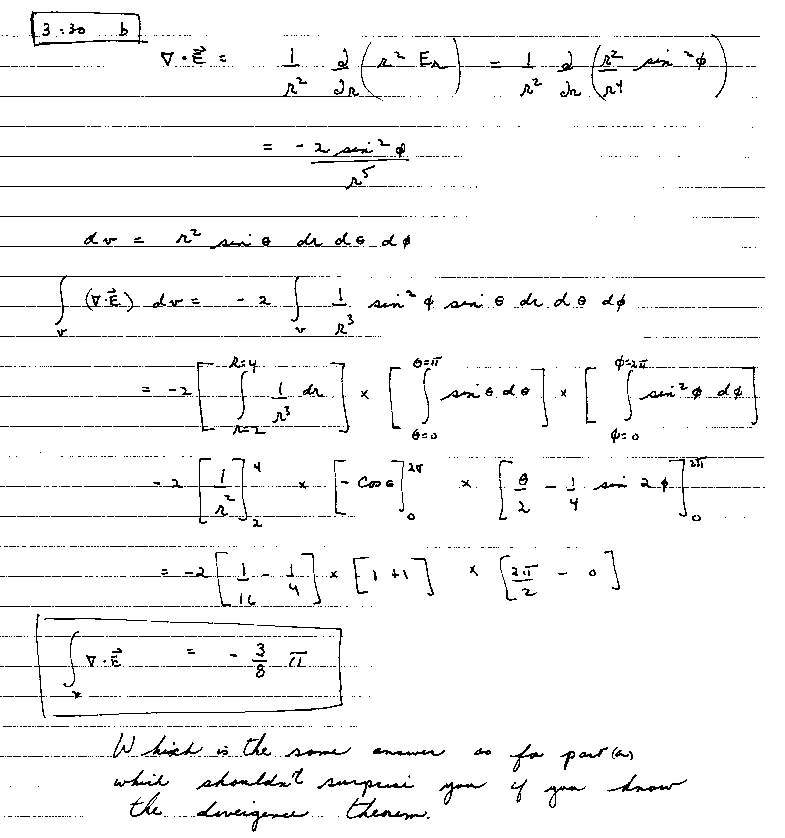 3.30 b
∇·E⃗ = 1/r² ∂/∂r (r² E_r) = 1/r² ∂/∂r (r²/r⁴ sin²φ)
= - 2 sin²φ / r⁵
dv = r² sin θ dr dθ dφ
∫_v (∇·E⃗) dv = - 2 ∫_v 1/r³ sin²φ sin θ dr dθ dφ
= -2 [ ∫_{R=2}^{R=4} 1/r³ dr ] × [ ∫_{θ=0}^{θ=π} sin θ dθ ] × [ ∫_{φ=0}^{φ=2π} sin²φ dφ ]
- 2 [ 1/r² ]_2^4 × [ - Cos θ ]_0^{2π} × [ θ/2 - 1/4 sin 2φ ]_0^{2π}
= -2 [ 1/16 - 1/4 ] × [ 1 + 1 ] × [ 2π/2 - 0 ]
∫_v ∇·E⃗ = - 3/8 π
Which is the same answer as for part (a)
which shouldn't surprise you if you know
the divergence theorem.